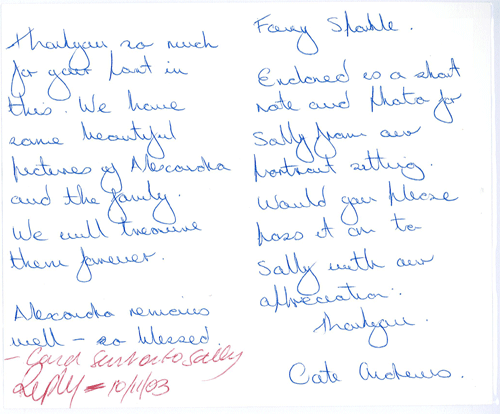 Fairy Sparkle.
Enclosed is a short
note and photo for
Sally from our
portrait sitting.
Would you please
pass it on to
Sally with our
appreciation.
Thankyou.
Cate Andrews.
Thankyou so much
for your part in
this. We have
some beautiful
pictures of Alexandra
and the family.
We will treasure
them forever.
Alexandra remains
well – so blessed
- Card sent on to Sally
Reply – 10/11/03